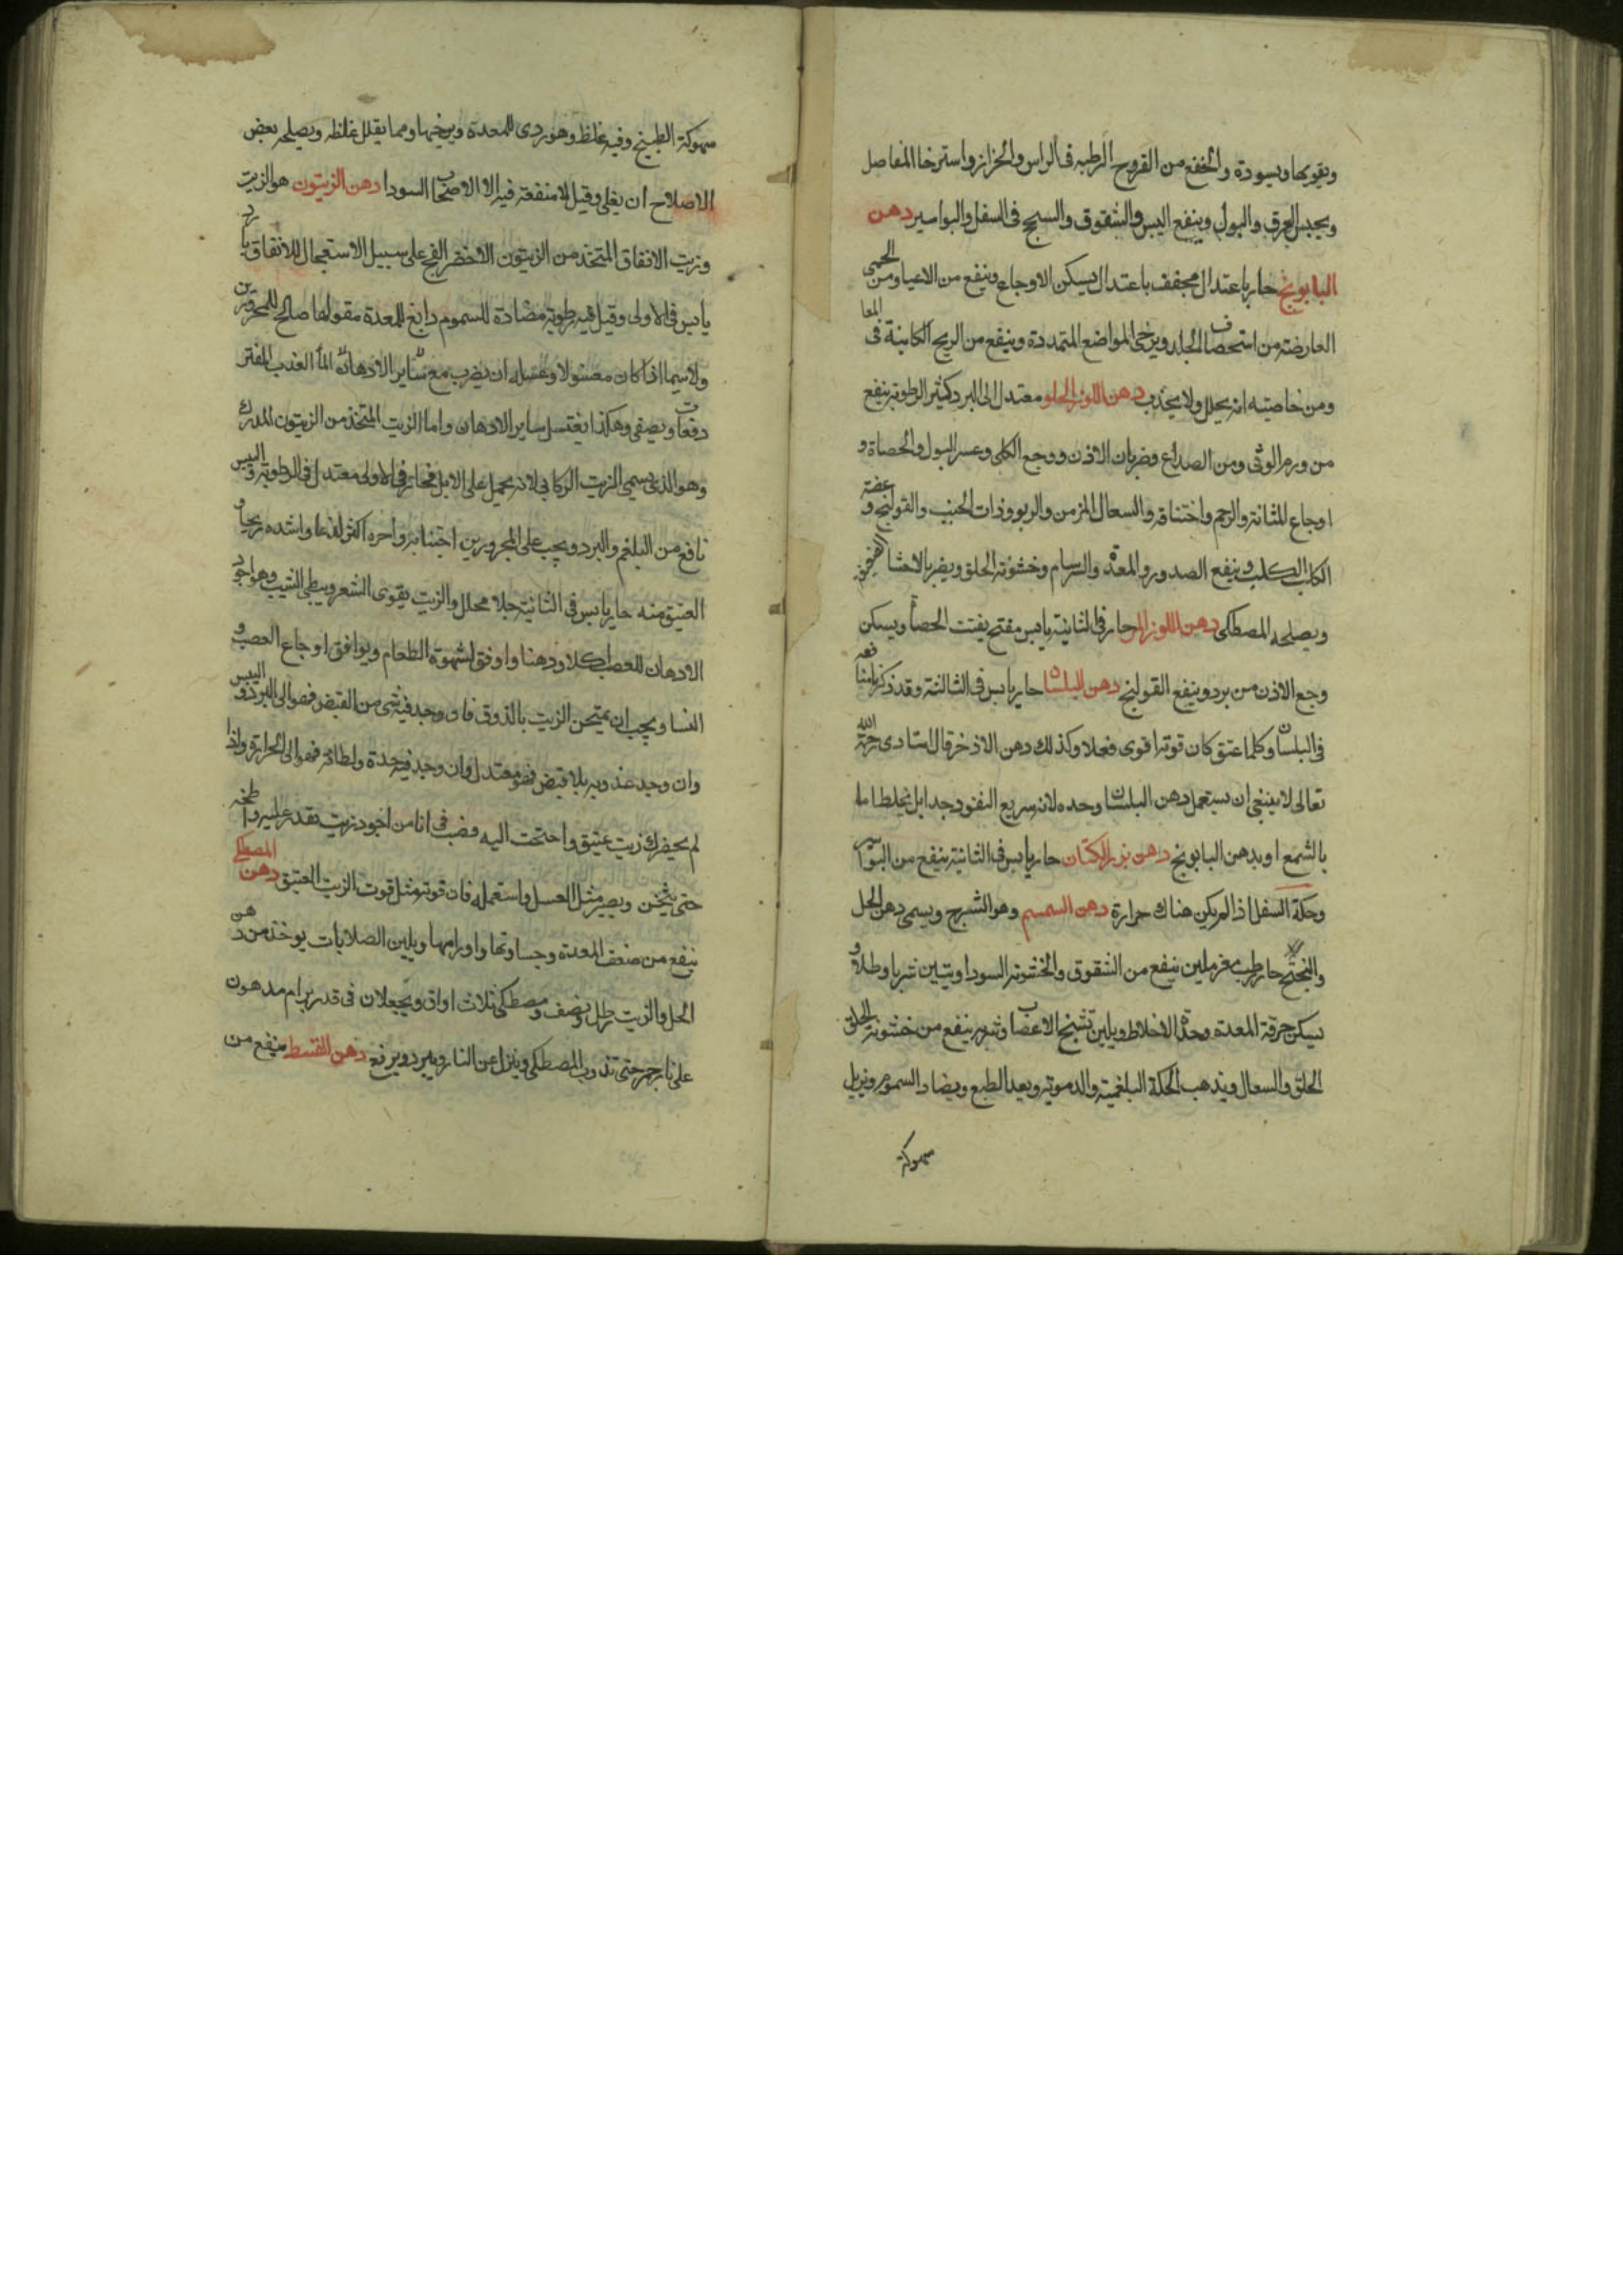 ويقويها ويسودة والخفع من القروح الرطبه فى الراس والحزاز واسترخا المفاصل
ويحبس العرق والبول وينفع اليبس والشقوق والسحج فى السفل والبواسير دهن
البابونج حار باعتدال مجفف باعتدال يسكن الاوجاع وينفع من الاعيا ومن الحمى
العارضة من استحصاف الجلد ويرخى المواضع المتمددة وينفع من الريح الكاينة فى المعا
ومن خاصيته انه يحلل ولا يجذب دهن اللوز الحلو معتدل الى البرد كثير الرطوبة ينفع
من ورم الوثى ومن الصداع وضربان الاذن ووجع الكلى وعسر البول والحصاة و
اوجاع المثانة والرحم واختناقه والسعال المزمن والربو وذات الجنب والقولنج وعضة
الكلب الكلب وينفع الصدور والمعدة والسرسام وخشونة الحلق ويضر بالاحشا الضعيفة
ويصلحه المصطكى دهن اللوز المر حار فى الثانية يابس مفتح يفتت الحصا ويسكن
وجع الاذن من برد وينفع القولنج دهن البلسان حار يابس فى الثالثة وقد ذكرنا منافعه
فى البلسان وكلما عتق كان قوته اقوى فعلا وكذلك دهن الاذخر قال استادى رحمة الله
تعالى لا ينبغى ان يستعمل دهن البلسان وحده لانه سريع النفود جدا بل يخلط اما
بالشمع او بدهن البابونج دهن بزر الكتان حار يابس فى الثانية ينفع من البواسير
وحكة السفل اذا لم يكن هناك حرارة دهن السمسم وهو الشيرج ويسمى دهن الحل
حار رطب مغر ملين ينفع من الشقوق والخشونة السودا ويتين شربا وطلا و
يسكن حرقة المعدة وحدة الاخلاط ويلين تشنج الاعصاب وشربه ينفع من خشونة الحلق
الحلق والسعال ويذهب الحكة البلغمية والدموية وبعد الطبع ويضاد السموم ويزيل
سهوكة
سهوكة الطبيخ وفيه غلظ وهو ردى للمعدة ويرخيها ومما يقلل غلظه ويصلحه بعض
الاصلاح ان يغلى وقيل لا منفعة فيه الا لاصحاب السودا دهن الزيتون هو الزيت
وزيت الانفاق المتخذ من الزيتون الاخضر الفج على سبيل الاستعجال للانفاق بارد
يابس فى الاولى وقيل فيه رطوبة مضادة للسموم دابغ للمعدة مقو لها صالح للمحرورين
ولا سيما اذا كان مغسولا وغسله ان يضرب مع ساير الادهان الما العذب المفتر
دفعات ويصفى وهكذا يغتسل ساير الادهان واما الزيت المتخذ من الزيتون المدرك
وهو الذى يسمى الزيت الركابى لانه يحمل على الابل فحار فى الاولى معتدل فى الرطوبة واليبس
نافع من البلغم والبرد ويجب على المحرورين اجتنابه واحره اكثر لذعا واشده ريحا و
العتيق منه حار يابس فى الثانية جلا محلل والزيت يقوى الشعر ويبطى الشيب وهو اجود
الادهان للعصب اكلا ودهنا واوفق لشهوة الطعام ويوافق اوجاع العصب و
النسا ويجب ان يمتحن الزيت بالذوق فان وجد فيه شى من القبض فهو الى البرد واليبس
وان وجد عذوبة بلا قبض فهو معتدل وان وجد فيه حدة ولطافة فهو الى الحرارة واذا
لم يحضرك زيت عتيق واحتجت اليه فصب فى انا من اجود زيت تقدر عليه واطبخه
حتى يثخن ويصير مثل العسل واستعمله فان قوته مثل قوت الزيت العتيق دهن المصطكى
ينفع من ضعف المعدة وجساوتها واورامها ويلين الصلابات يوخذ من دهن
الحل والزيت رطل ونصف ومصطكى ثلاث اواق ويجعلان فى قدر برام مدهون
على نار جمر حتى تذوب المصطكى وينزل عن النار ويبرد ويرفع دهن القسط ينفع من